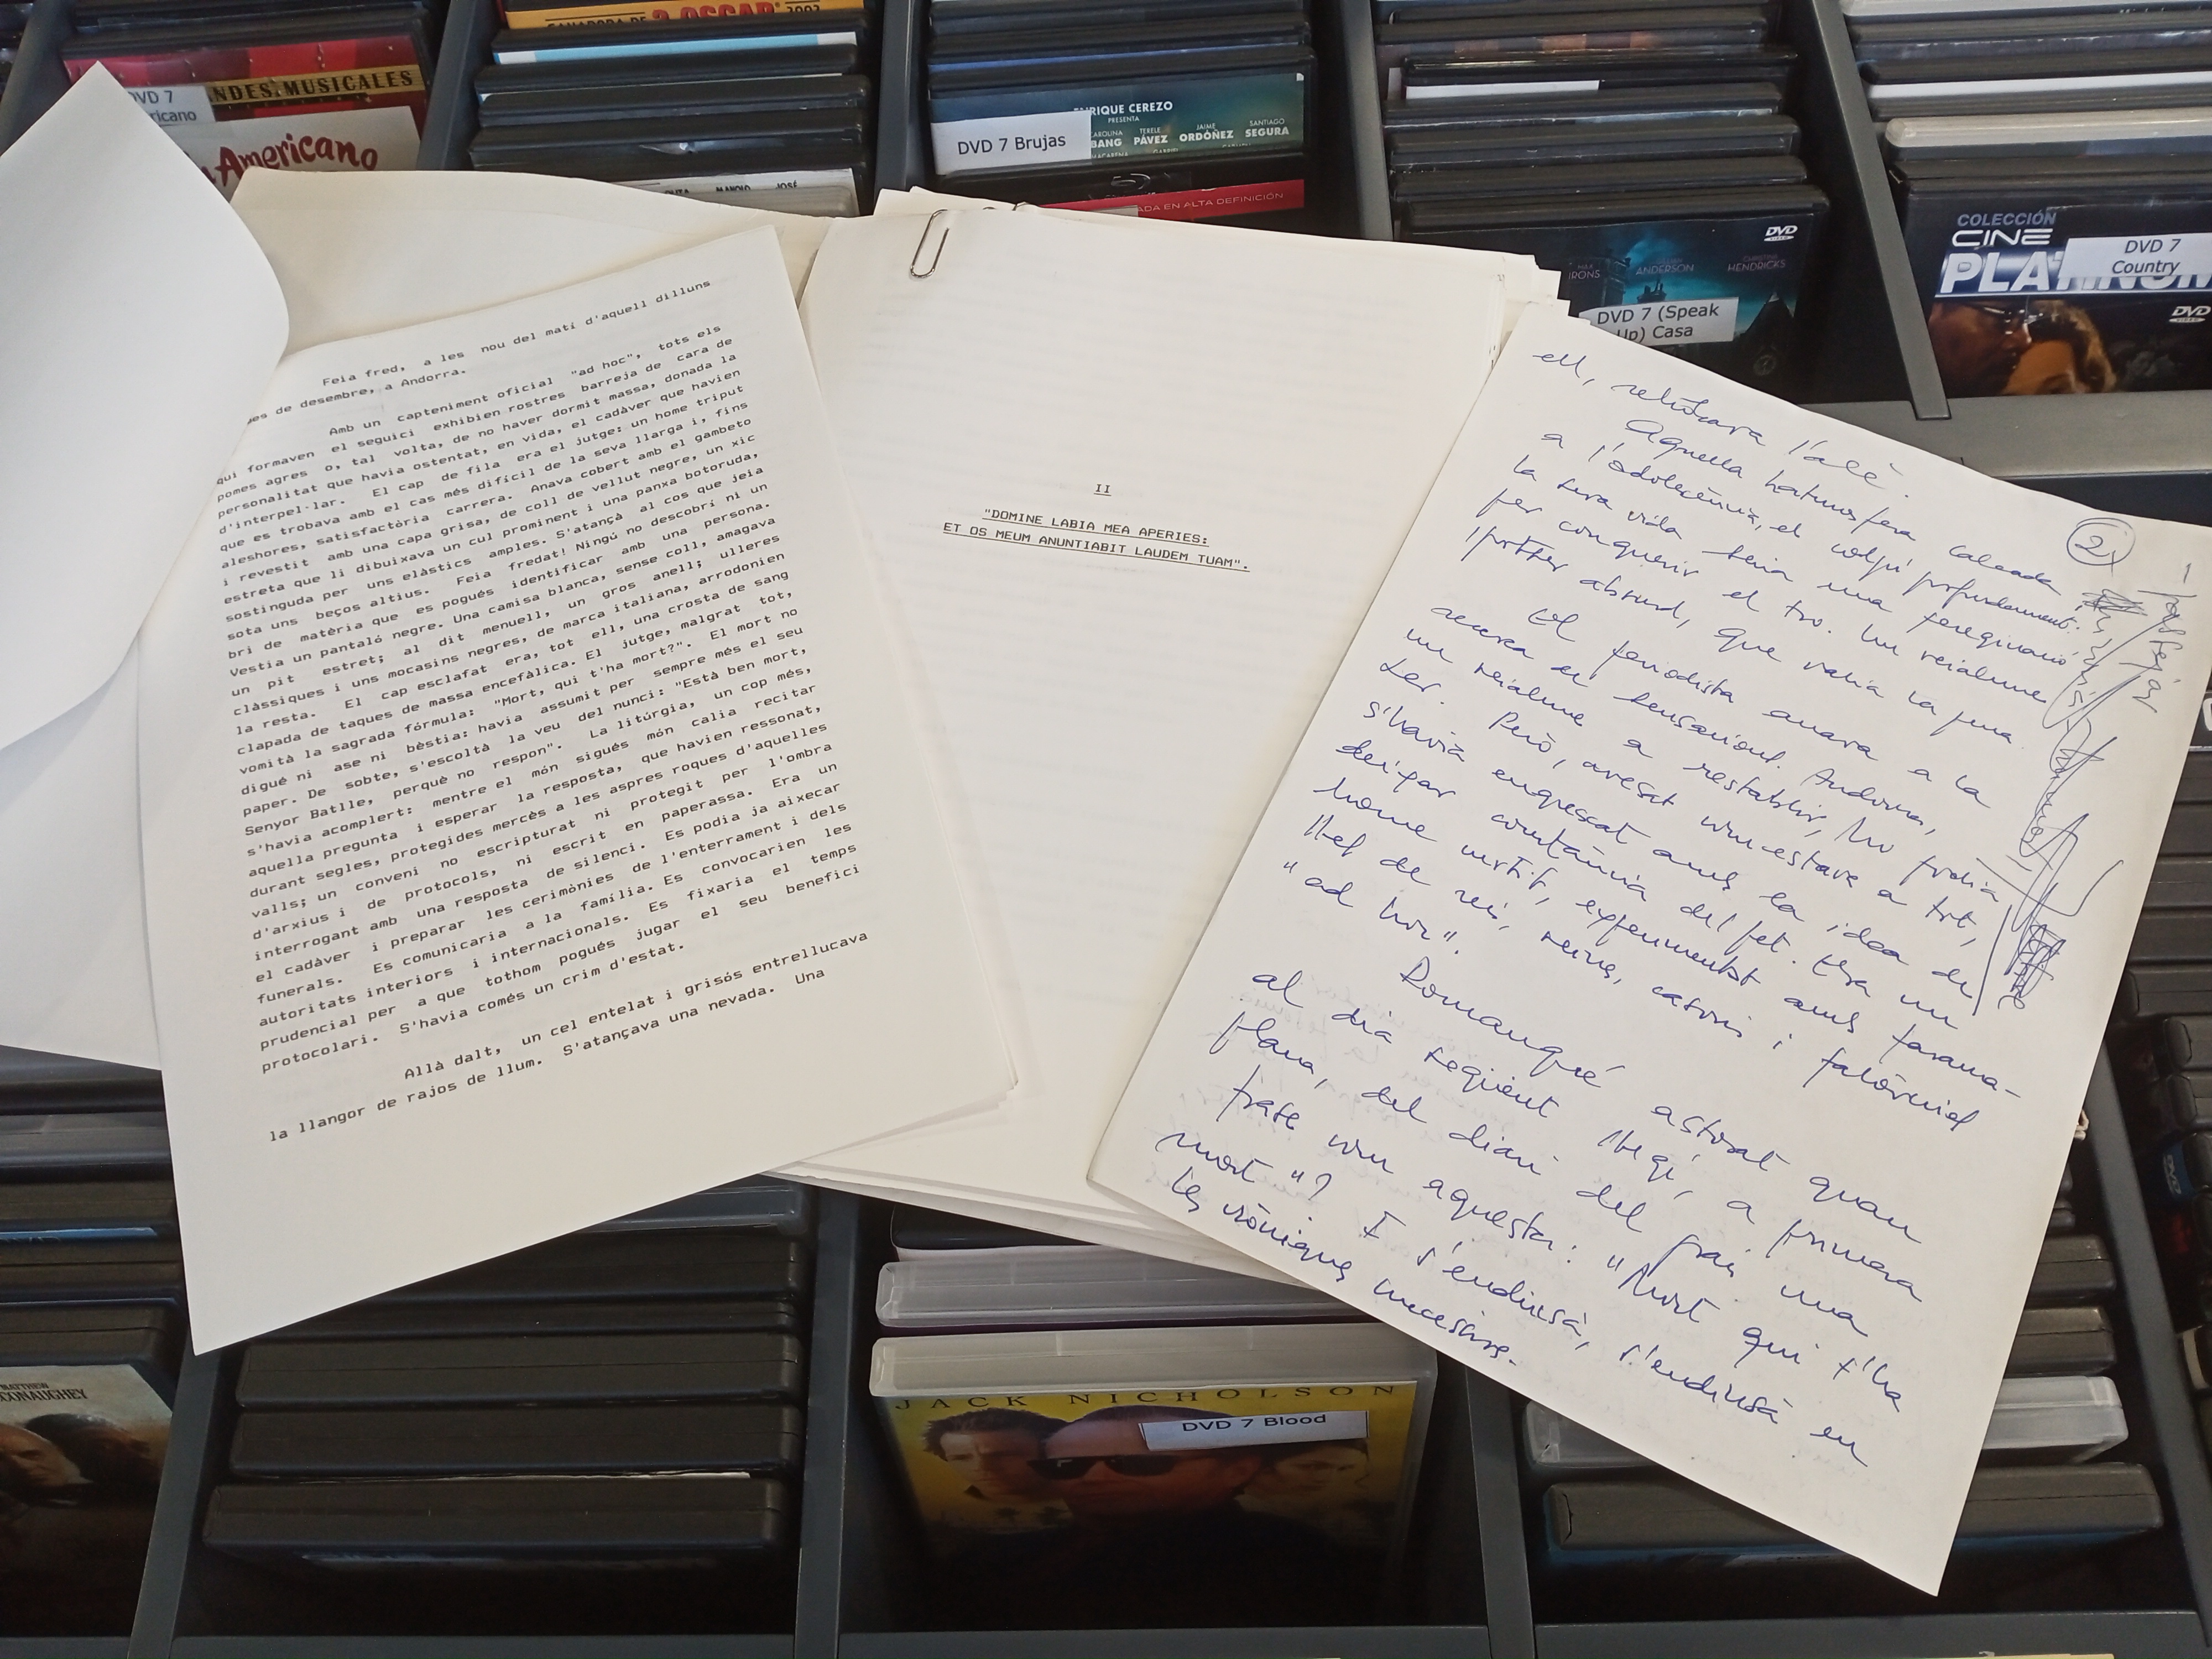 GANADORA DE 3 OSCAR 2003
NDES MUSICALES
DVD 7
ricano
Americano
ENRIQUE CEREZO
PRESENTA
CAROLINA
BANG
TERELE
PÁVEZ
JAIME
ORDÓÑEZ
SANTIAGO
SEGURA
DVD 7 Brujas
MACARENA
MANOLO JOSÉ
ADA EN ALTA DEFINICIÓN
DVD
VIDEO
IRONS
ANDERSON
CHRISTINA
HENDRICKS
DVD 7 (Speak
Up) Casa
COLECCIÓN
CINE
PLATINUM
DVD 7
Country
DVD
VIDEO
Feia fred, a les nou del matí d'aquell dilluns
mes de desembre, a Andorra.
Amb un capteniment oficial "ad hoc", tots els
qui formaven el seguici exhibien rostres barreja de cara de
pomes agres o, tal volta, de no haver dormit massa, donada la
personalitat que havia ostentat, en vida, el cadàver que havien
d'interpel·lar. El cap de fila era el jutge: un home triput
que es trobava amb el cas més difícil de la seva llarga i, fins
aleshores, satisfactòria carrera. Anava cobert amb el gambeto
i revestit amb una capa grisa, de coll de vellut negre, un xic
estreta que li dibuixava un cul prominent i una panxa botoruda,
sostinguda per uns elàstics amples. S'atançà al cos que jeia
sota uns beços altius. Feia fredat! Ningú no descobrí ni un
bri de matèria que es pogués identificar amb una persona.
Vestia un pantaló negre. Una camisa blanca, sense coll, amagava
un pit estret; al dit menuell, un gros anell; ulleres
clàssiques i uns mocasins negres, de marca italiana, arrodonien
la resta. El cap esclafat era, tot ell, una crosta de sang
clapada de taques de massa encefàlica. El jutge, malgrat tot,
vomità la sagrada fórmula: "Mort, qui t'ha mort?". El mort no
digué ni ase ni bèstia: havia assumit per sempre més el seu
paper. De sobte, s'escoltà la veu del nunci: "Està ben mort,
Senyor Batlle, perquè no respon". La litúrgia, un cop més,
s'havia acomplert: mentre el món sigués món calia recitar
aquella pregunta i esperar la resposta, que havien ressonat,
durant segles, protegides mercès a les aspres roques d'aquelles
valls; un conveni no escripturat ni protegit per l'ombra
d'arxius i de protocols, ni escrit en paperassa. Era un
interrogant amb una resposta de silenci. Es podia ja aixecar
el cadàver i preparar les cerimònies de l'enterrament i dels
funerals. Es comunicaria a la família. Es convocarien les
autoritats interiors i internacionals. Es fixaria el temps
prudencial per a que tothom pogués jugar el seu benefici
protocolari. S'havia comés un crim d'estat.
Allà dalt, un cel entelat i grisós entrellucava
la llangor de rajos de llum. S'atançava una nevada. Una
II
"DOMINE LABIA MEA APERIES:
ET OS MEUM ANUNTIABIT LAUDEM TUAM".
2
ell, retrobava l'alè.
Aquella hatmosfera calcada
a l'adolescència, el colpí profundament:
la seva vida tenia una peregrinació
per conquerir el tro. Un reialme
potser absurd, que valia la pena.
El periodista anava a la
recerca de sensacional. Andorra,
un reialme a restablir, no podia
ser. Però, avesat com estava a tot,
s'havia engrescat amb la idea de
deixar constància del fet. Era un
home curtit, experimentat amb farama-
lles de reis, reines, casoris i
"ad hoc".
Romangué astorat quan
al dia següent llegí, a primera
plana, del diari del país una
frase com aquesta: "Mort qui t'ha
mort"? I s'endinsà, s'endinsà en
les cròniques necessàries.
MATTHEW
CONAUGHEY
JACK NICHOLSON
DVD 7 Blood